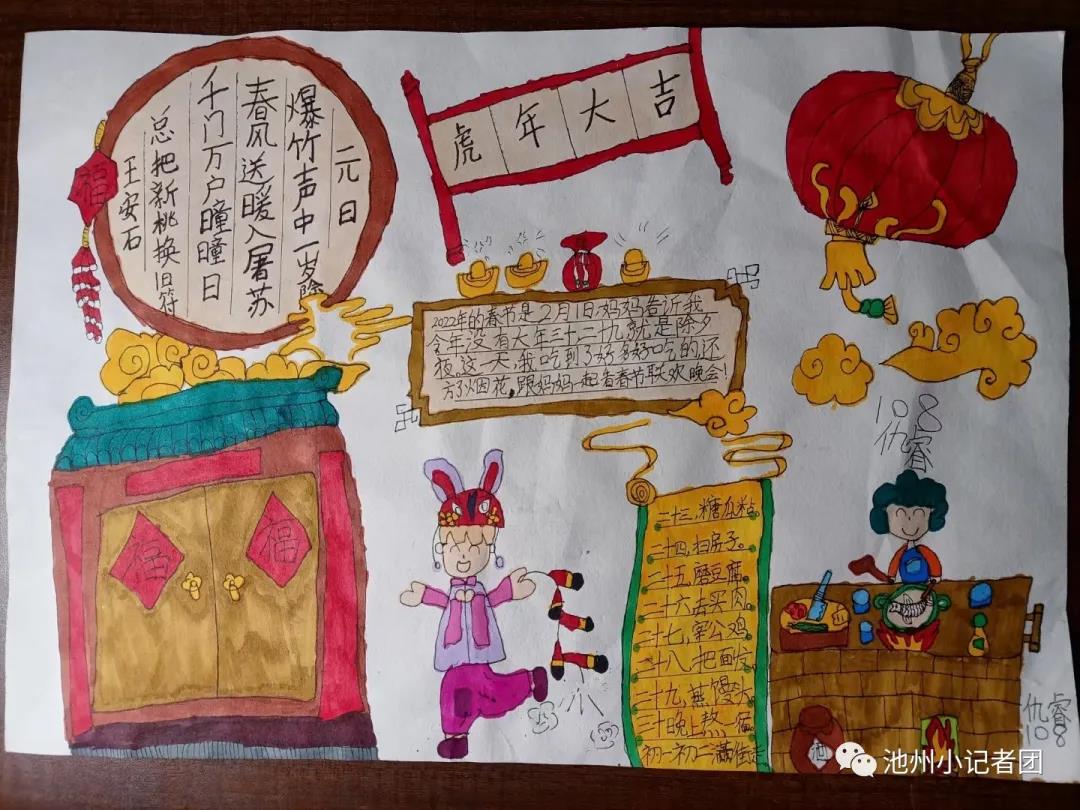 元日
爆竹声中一岁除
春风送暖入屠苏
千门万户曈曈日
总把新桃换旧符
王安石
福
虎年大吉
2022年的春节是2月1日,妈妈告近我
今年没有大年三十二十九就是除夕
夜。这一天,我吃到了好多好吃的,还
方了烟花,跟妈妈一起看春节联欢晚会!
108
仇睿
福
福
二十三,糖瓜粘。
二十四,扫房子。
二十五,磨豆腐
二十六去买肉。
二十七,宰公鸡
二十八,把面发。
二十九,蒸馒头
三十晚上熬一宿
初一初二满街走
酒
仇睿
108
池州小记者团